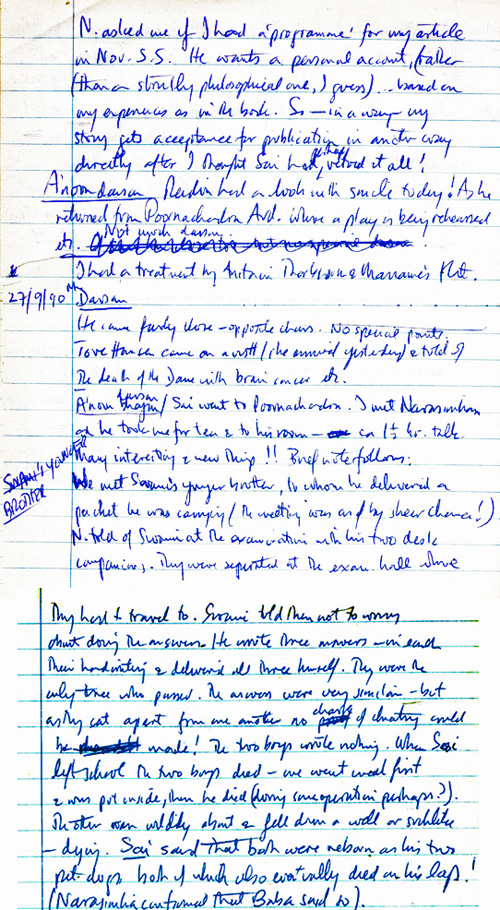 N. asked me if I had a 'programme' for my article
in Nov. S.S. He wants a personal account, (rather
than a strictly philosophical one, I guess)... based on
my experiences as in the book. So — in a way my
story gets acceptance for publication in another way
directly after I thought Sai had vetoed it all!
A'noon darsan had a look with smile today! As he
returned from Poornachandra Aud. where a play is being rehearsed
etc. Not much darsan.
I had a treatment by Thorbjörn & Flat.
27/9/90 Darsan
He came fairly close – opposite chairs. No special points.
Tove Hansen came on a visit (she arrived yesterday) & told of
the death of the Dane with brain cancer etc.
A'noon darsan bhajan / Sai went to Poornachandra. I met Narasimhan
as he took me for tea & to his room – ca 1½ hr. talk.
Many interesting & new things!! Brief note follows:
SWAMI'S YOUNGER
BROTHER
We met Swami's younger brother, to whom he delivered a
packet he was carrying (the meeting was by sheer chance!)
N. told of Swami at the examinations with his two desk
companions. They were separated at the exam. hall where
they had to travel to. Swami told them not to worry
about doing the answers. He wrote three answers – in each
their handwriting & delivered all three himself. They were the
only three who passed. The answers were very similar – but
as they sat apart from one another no charge of cheating could
be made! The two boys wrote nothing. When Sai
left school the two boys died – one went mad first
& was put inside, then he died (during some operation perhaps?).
The other ran wildly about & fell down a well or suchlike
– dying. Sai said that both were reborn as his two
pet-dogs both of which also eventually died on his lap!
(Narasimhan confirmed that Baba said so).